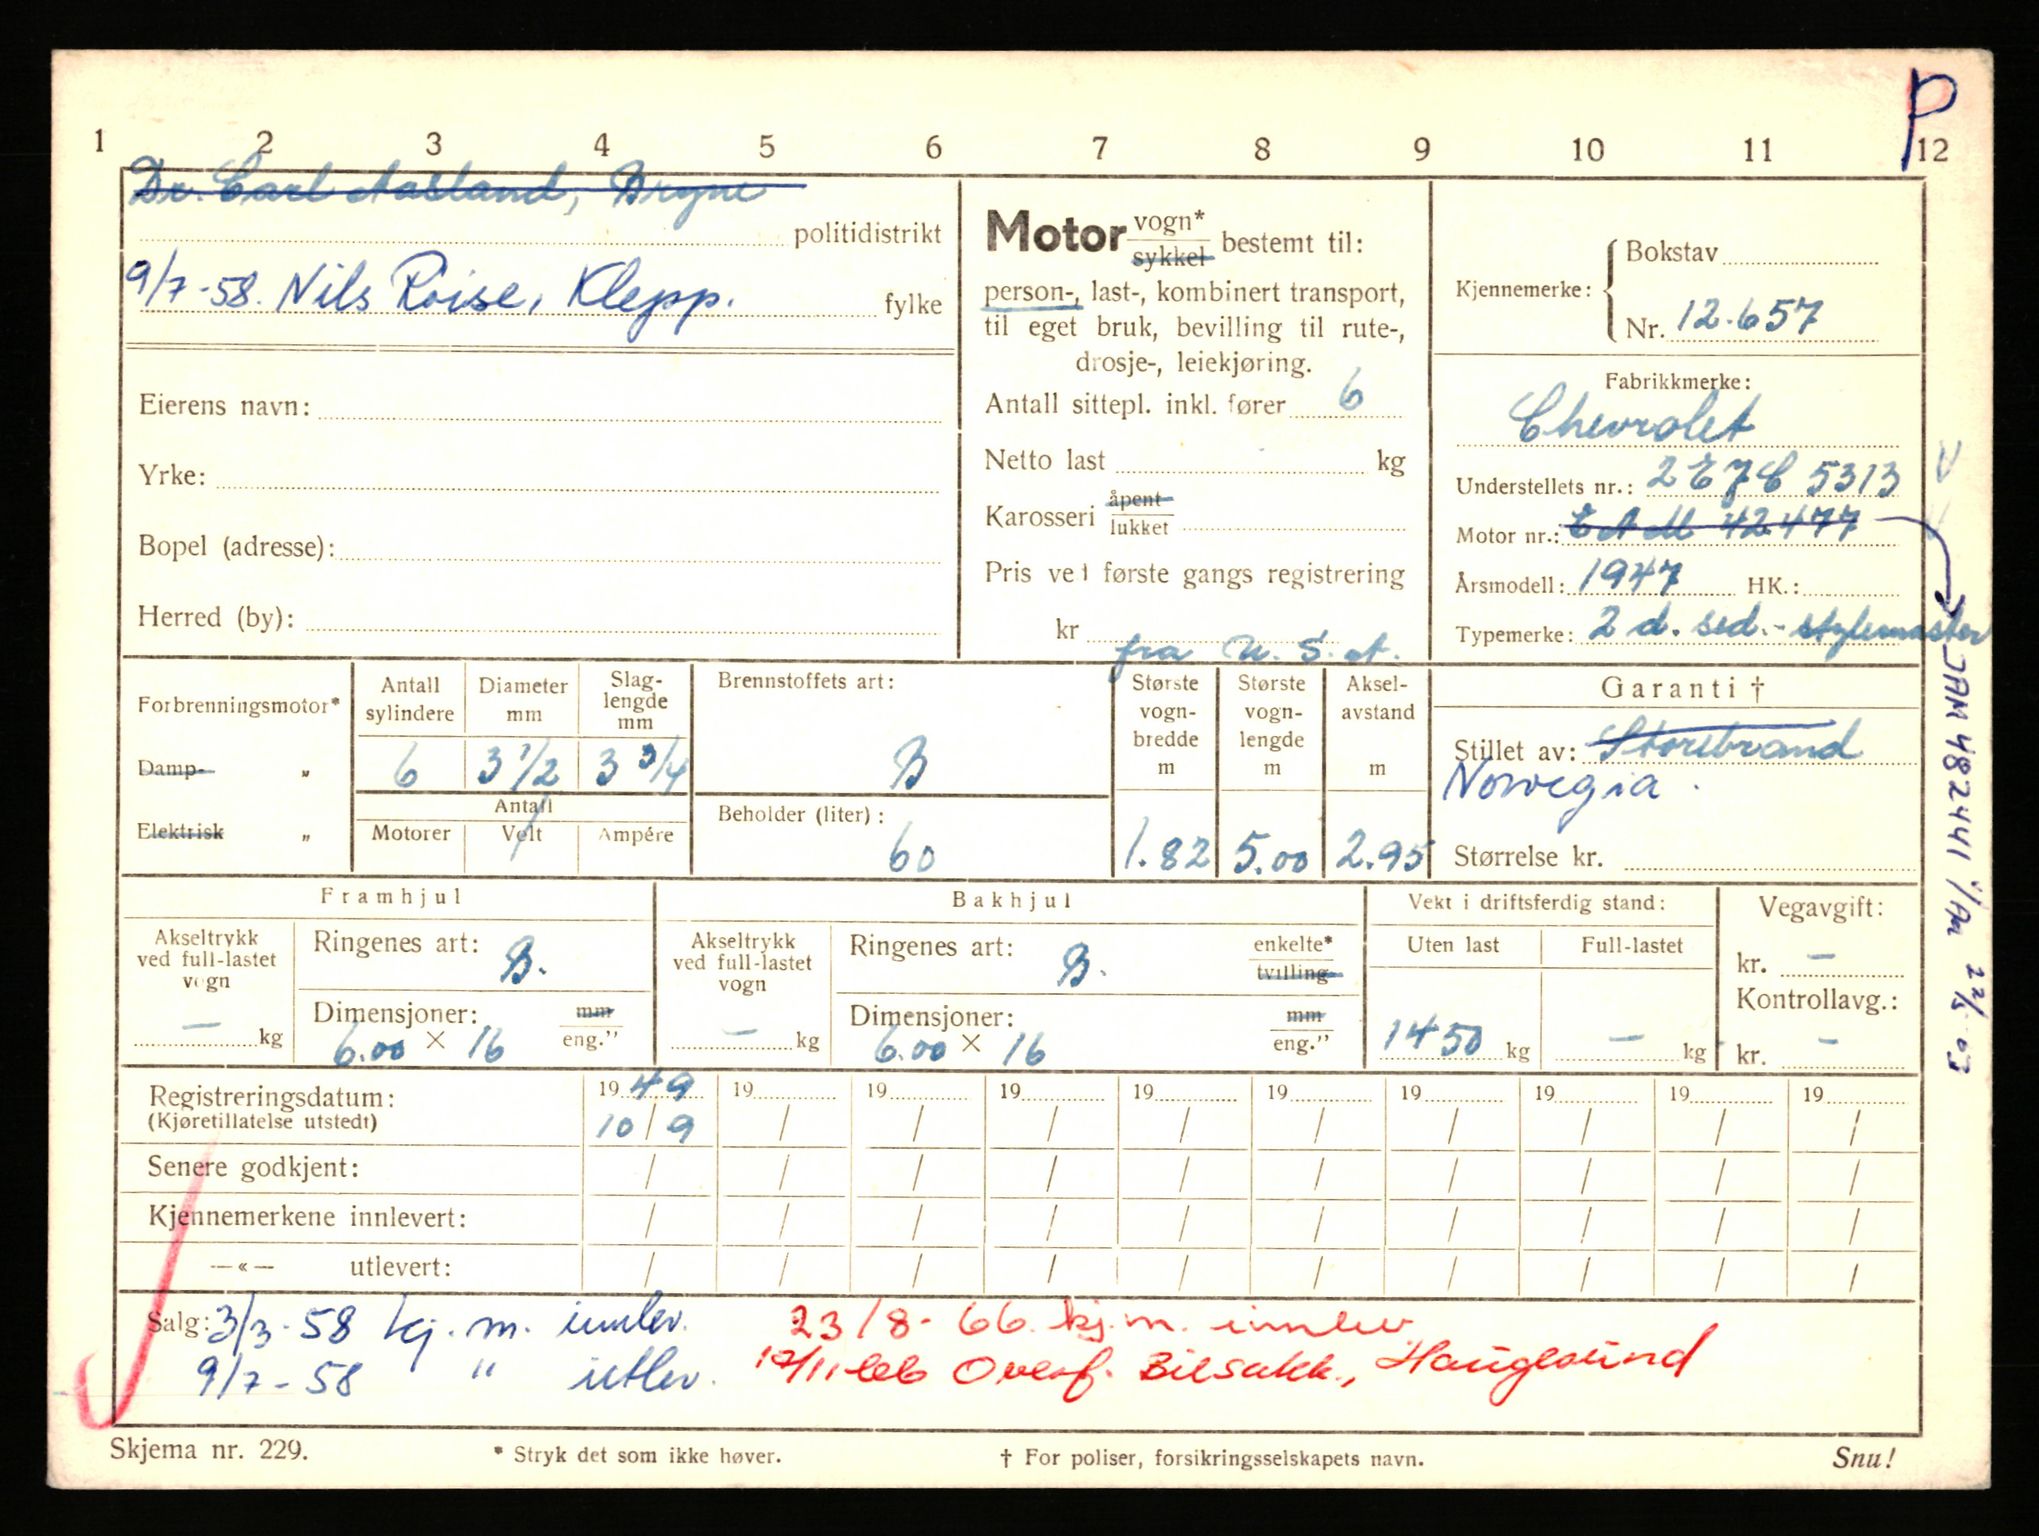 P
1 2 3 4 5 6 7 8 9 10 11 12
Dr. Carl Aasland, Bryne
politidistrikt
9/7-58. Nils Roise, Klepp.
fylke
Eierens navn:
Yrke:
Bopel (adresse):
Herred (by):
Motor vogn* sykkel bestemt til:
person-, last-, kombinert transport,
til eget bruk, bevilling til rute-,
drosje-, leiekjøring.
Antall sittepl. inkl. fører 6
Netto last kg
Karosseri åpent lukket
Pris ved første gangs registrering
kr
fra U.S.A.
Kjennemerke:
Bokstav
Nr. 12.657
Fabrikkmerke:
Chevrolet
Understellets nr.: 2 E J C 5313
Motor nr.: EAM 42477
Årsmodell: 1947 HK.:
Typemerke: 2 d. sed.- stylemaster
JAM 482441 22/5-63
Forbrenningsmotor*
Damp- „
Elektrisk „
Antall sylindere
6
Diameter mm
3 1/2
Slag-lengde mm
3 3/4
Antall
Motorer Volt Ampére
Brennstoffets art:
B
Beholder (liter):
60
Største vogn-bredde m
1.82
Største vogn-lengde m
5.00
Aksel-avstand m
2.95
Garanti †
Stillet av: Storebrand
Norvegia.
Størrelse kr.
Framhjul
Akseltrykk ved full-lastet vogn
— kg
Ringenes art: B.
Dimensjoner: mm eng."
6.00 × 16
Bakhjul
Akseltrykk ved full-lastet vogn
— kg
Ringenes art: B. enkelte* tvilling
Dimensjoner: mm eng."
6.00 × 16
Vekt i driftsferdig stand:
Uten last Full-lastet
1450 kg — kg
Vegavgift:
kr. —
Kontrollavg.:
kr. —
Registreringsdatum: 19 49 19 19 19 19 19 19 19 19 19
(Kjøretillatelse utstedt) 10/9 / / / / / / / / /
Senere godkjent: / / / / / / / / / /
Kjennemerkene innlevert: / / / / / / / / / /
—«— utlevert: / / / / / / / / / /
Salg: 3/3-58 kj.m. innlev. 23/8-66. kj.m. innlev
9/7-58 " utlev. 17/11-66 Overf. Bilsakk., Haugesund
Skjema nr. 229. * Stryk det som ikke høver. † For poliser, forsikringsselskapets navn. Snu!